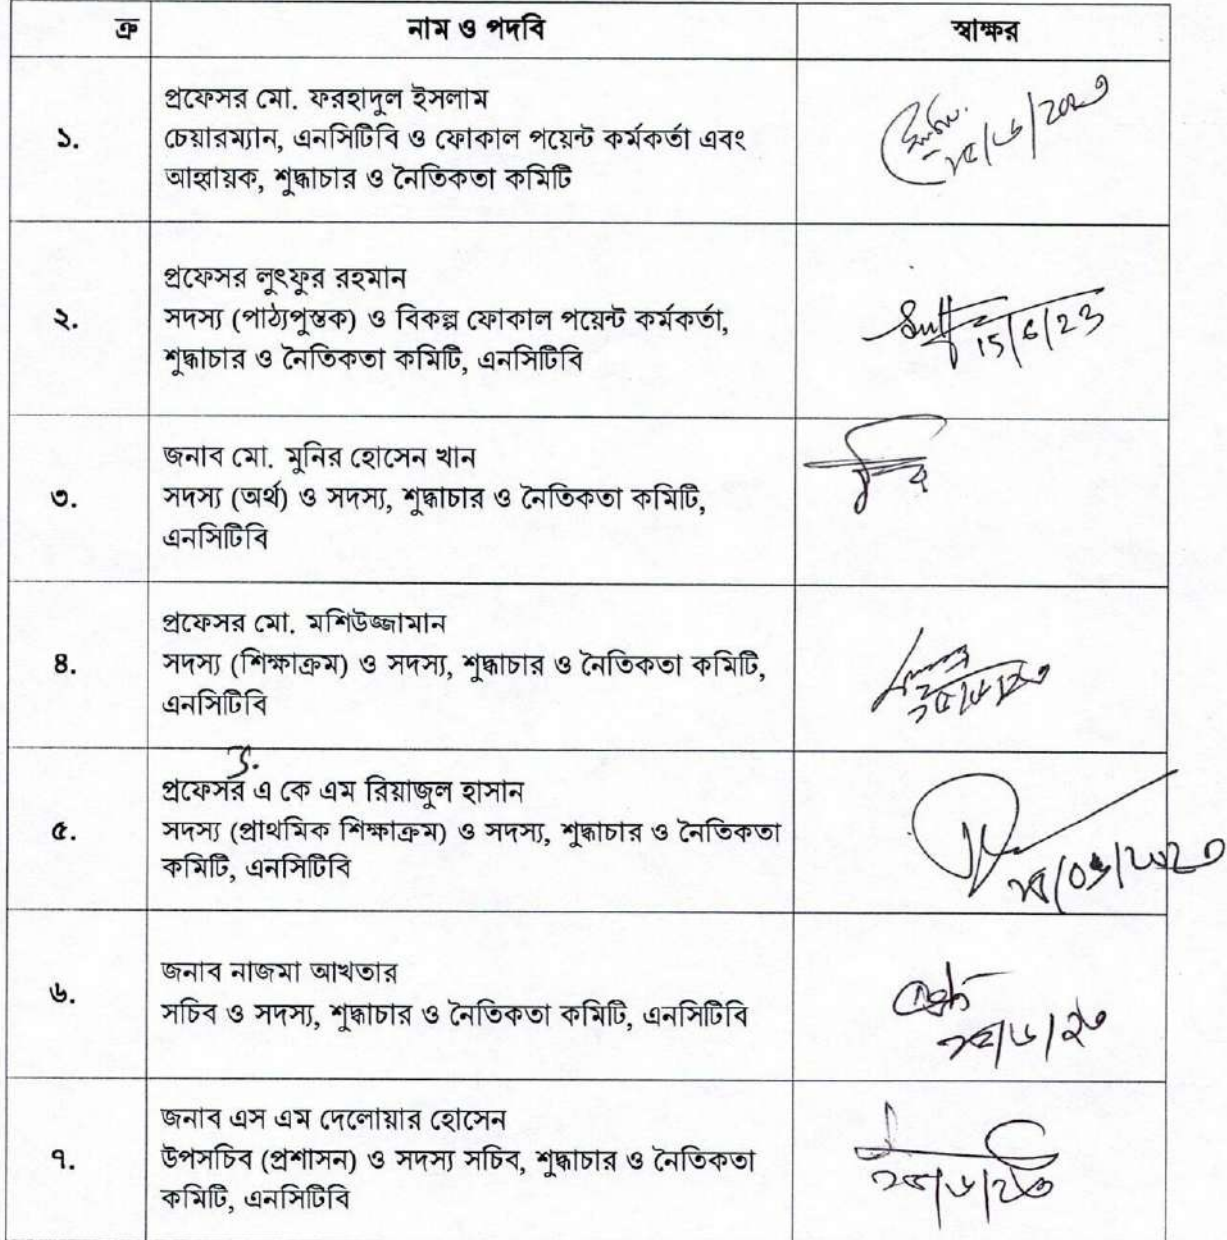 ক্র নাম ও পদবি স্বাক্ষর
প্রফেসর মো. ফরহাদুল ইসলাম
১. চেয়ারম্যান, এনসিটিবি ও ফোকাল পয়েন্ট কর্মকর্তা এবং
আহ্বায়ক, শুদ্ধাচার ও নৈতিকতা কমিটি
১৫/৬/২০২৩
প্রফেসর লুৎফুর রহমান
২. সদস্য (পাঠ্যপুস্তক) ও বিকল্প ফোকাল পয়েন্ট কর্মকর্তা,
শুদ্ধাচার ও নৈতিকতা কমিটি, এনসিটিবি
15/6/23
জনাব মো. মুনির হোসেন খান
৩. সদস্য (অর্থ) ও সদস্য, শুদ্ধাচার ও নৈতিকতা কমিটি,
এনসিটিবি
প্রফেসর মো. মশিউজ্জামান
৪. সদস্য (শিক্ষাক্রম) ও সদস্য, শুদ্ধাচার ও নৈতিকতা কমিটি,
এনসিটিবি
১৫/৬/২৩
প্রফেসর এ কে এম রিয়াজুল হাসান
৫. সদস্য (প্রাথমিক শিক্ষাক্রম) ও সদস্য, শুদ্ধাচার ও নৈতিকতা
কমিটি, এনসিটিবি
জনাব নাজমা আখতার
৬. সচিব ও সদস্য, শুদ্ধাচার ও নৈতিকতা কমিটি, এনসিটিবি
১৫/৬/২৩
জনাব এস এম দেলোয়ার হোসেন
৭. উপসচিব (প্রশাসন) ও সদস্য সচিব, শুদ্ধাচার ও নৈতিকতা
কমিটি, এনসিটিবি
১৫/৬/২৩